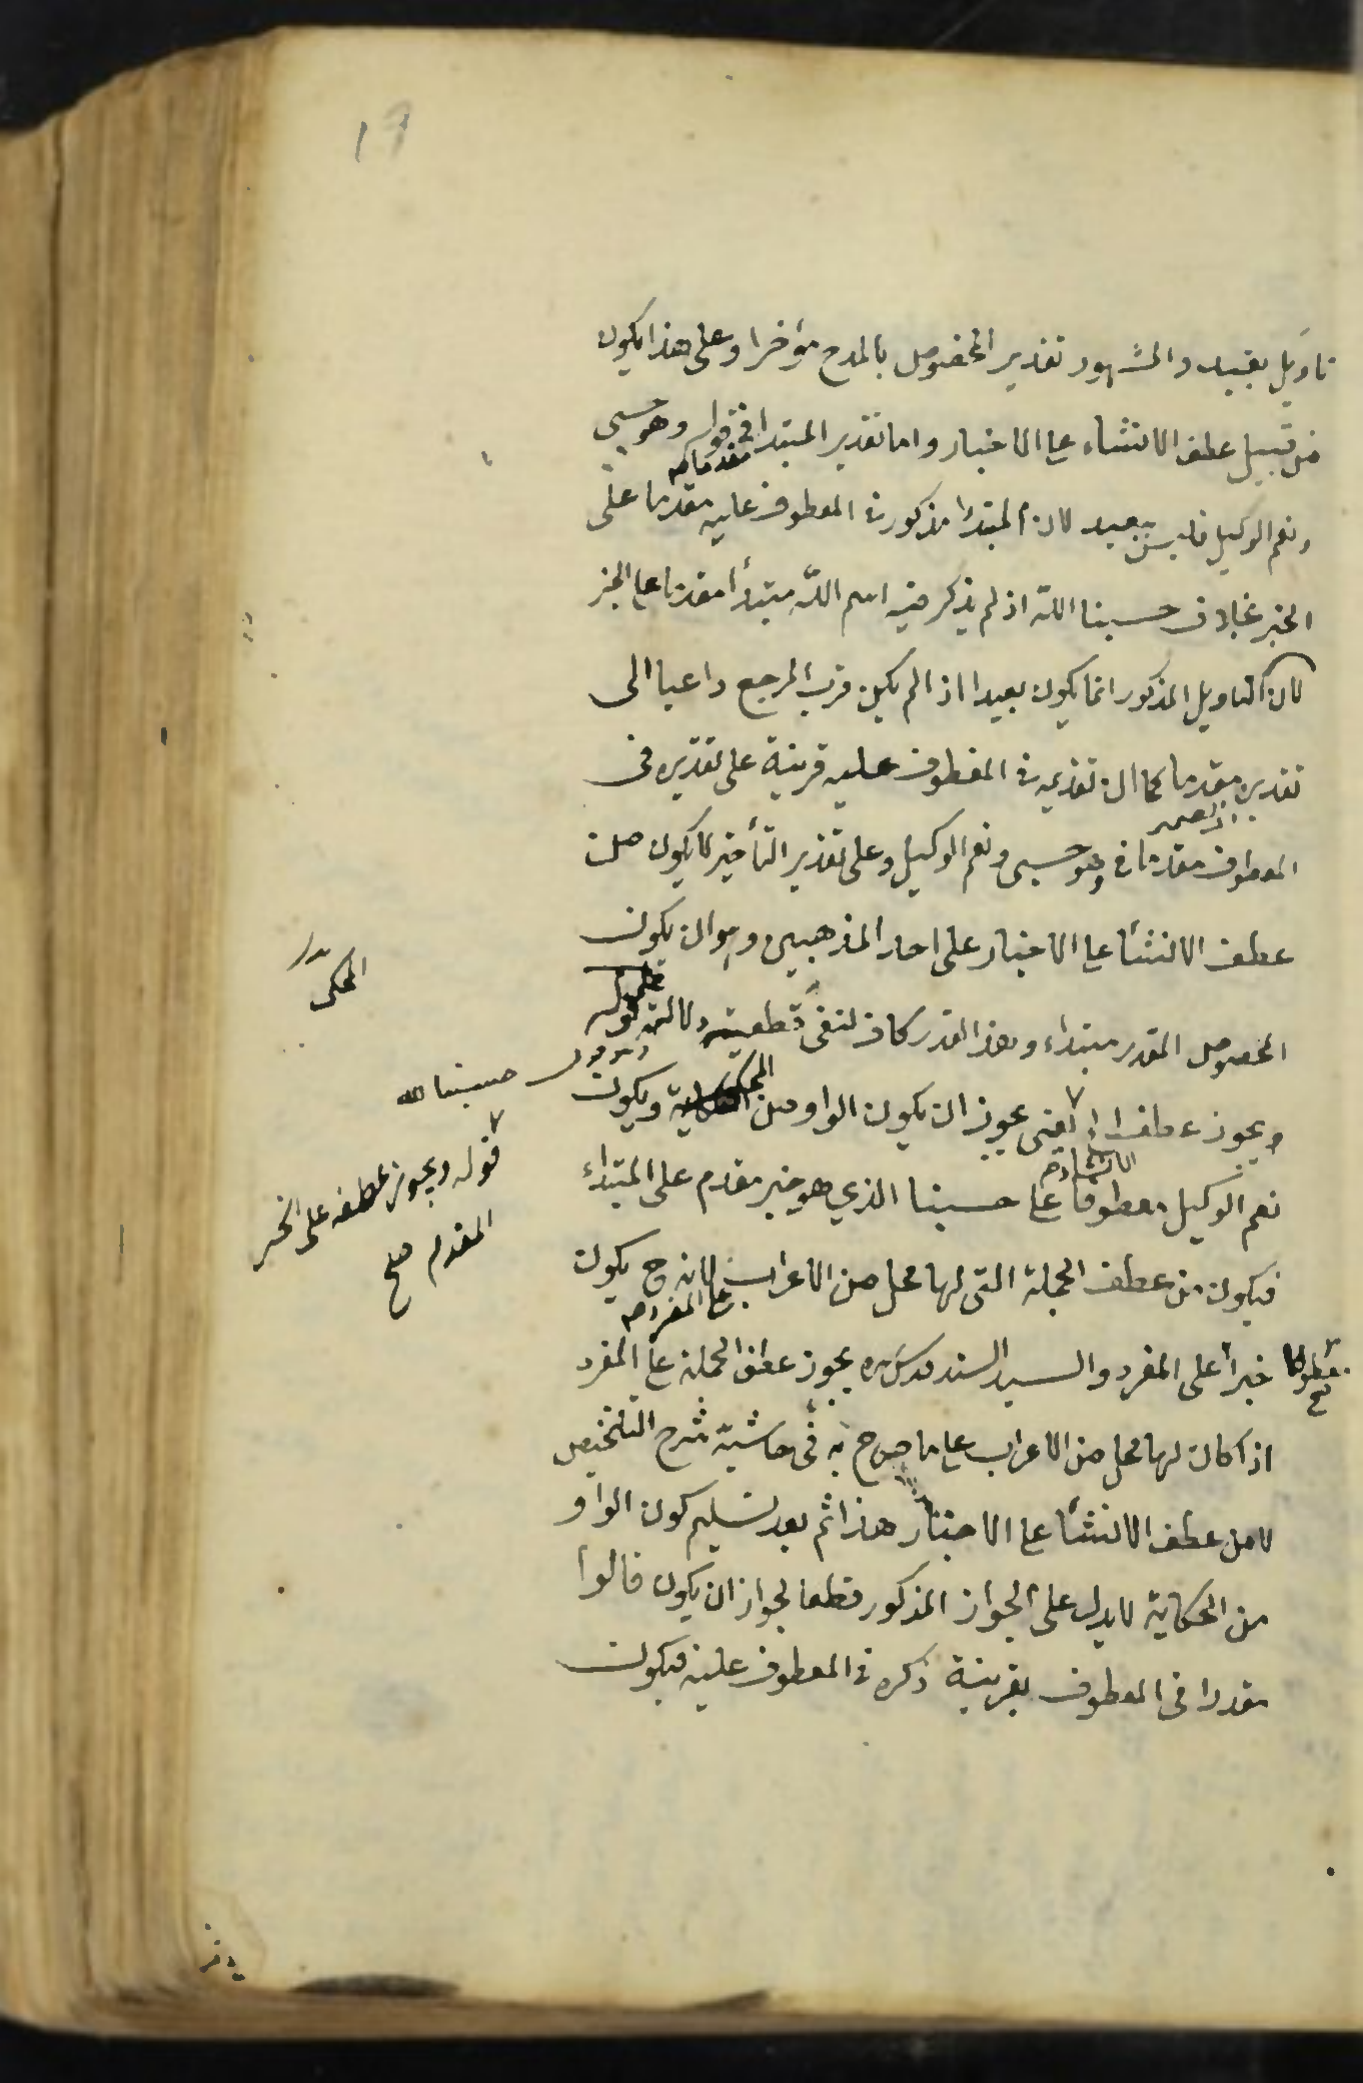 19
تأويل بعيد والمشهور تقدير المخصوص بالمدح مؤخرا وعلى هذا يكون
من قبيل عطف الانشاء على الاخبار واما تقدير المبتدا في قوله وهو حسبي
مقدما
ونعم الوكيل فليس ببعيد لان المبتدا مذكور في المعطوف عليه مقدما على
الخبر بخلاف حسبنا الله اذ لم يذكر فيه اسم الله مبتدأ مقدما على الخبر
لان التاويل المذكور انما يكون بعيدا اذا لم يكن قرب المرجع داعيا الى
تقديره مقدما كما ان تقديمه في المعطوف عليه قرينة على تقديره في
المعطوف مقدما في وهو حسبي ونعم الوكيل وعلى تقدير التأخير لا يكون من
عطف الانشا على الاخبار على احد المذهبين وهو ان يكون
المخصوص المقدر مبتداء وهذا القدر كاف لنفي قطعية دلالته قوله
ويجوز عطف يعني يجوز ان يكون الواو من المحكي ويكون
نعم الوكيل معطوفا على حسبنا الذي هو خبر مقدم على المبتداء
فيكون من عطف الجملة التي لها محل من الاعراب لانه ح يكون
على المفرد
معطوفا خبرا على المفرد والسيد السند قدس سره يجوز عطف الجملة على المفرد
اذا كان لها محل من الاعراب على ما صرح به في حاشية شرح التلخيص
لا من عطف الانشا على الاخبار هذا ثم بعد تسليم كون الواو
من الحكاية لا يدل على الجواز المذكور قطعا لجواز ان يكون قالوا
مقدرا في المعطوف بقرينة ذكره في المعطوف عليه فيكون
المحكي
حسبنا الله
قوله ويجوز عطفه على الخبر
المقدم صح